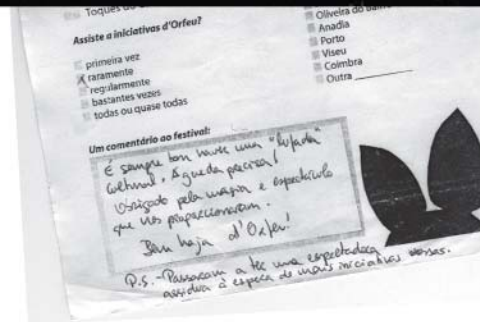 Toques
Assiste a iniciativas d'Orfeu?
primeira vez
raramente
regularmente
bastantes vezes
todas ou quase todas
Oliveira do Bairro
Anadia
Porto
Viseu
Coimbra
Outra
Um comentário ao festival:
É sempre bom haver uma "lufada"
cultural. Águeda precisa!
Obrigado pela magia e espectáculo
que nos proporcionaram.
Bem haja d'Orfeu!
P.S. - Passaram a ter uma espectadora
assídua à espera de mais iniciativas vossas.